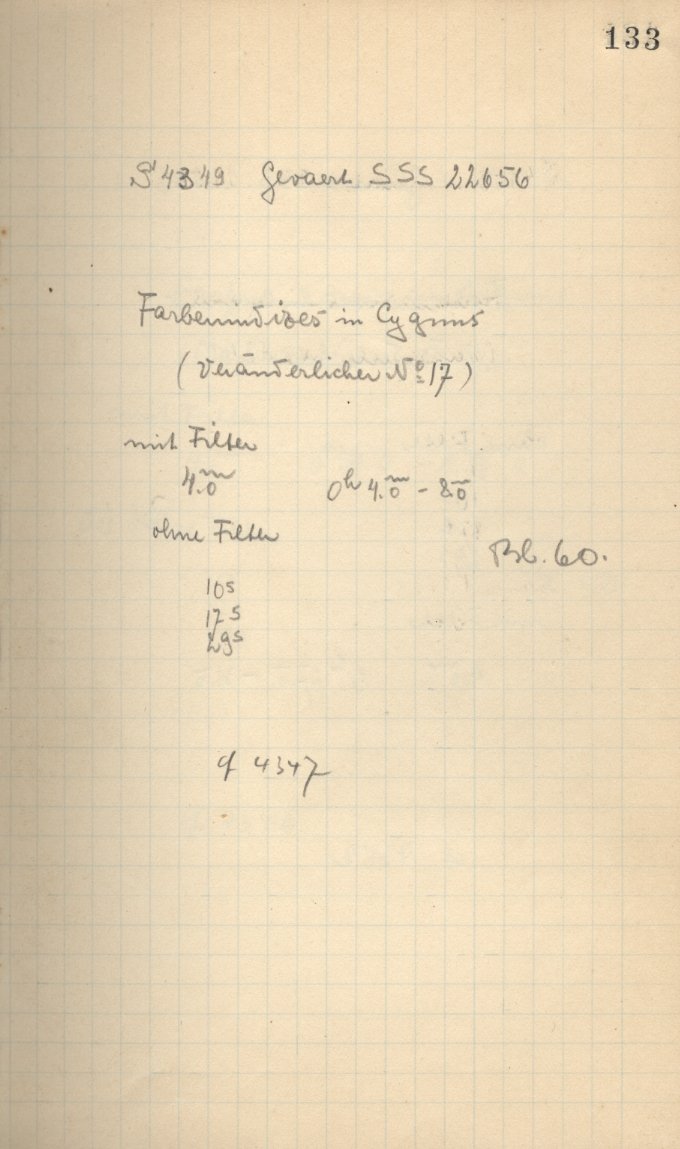 133
S 4349 Gevaert SSS 22656
Farbenindizes in Cygnus
(Veränderlicher No 17)
mit Filter
4.0m 0h 4.0m - 8.0m
ohne Filter
Bl. 60.
10s
17s
29s
cf 4347